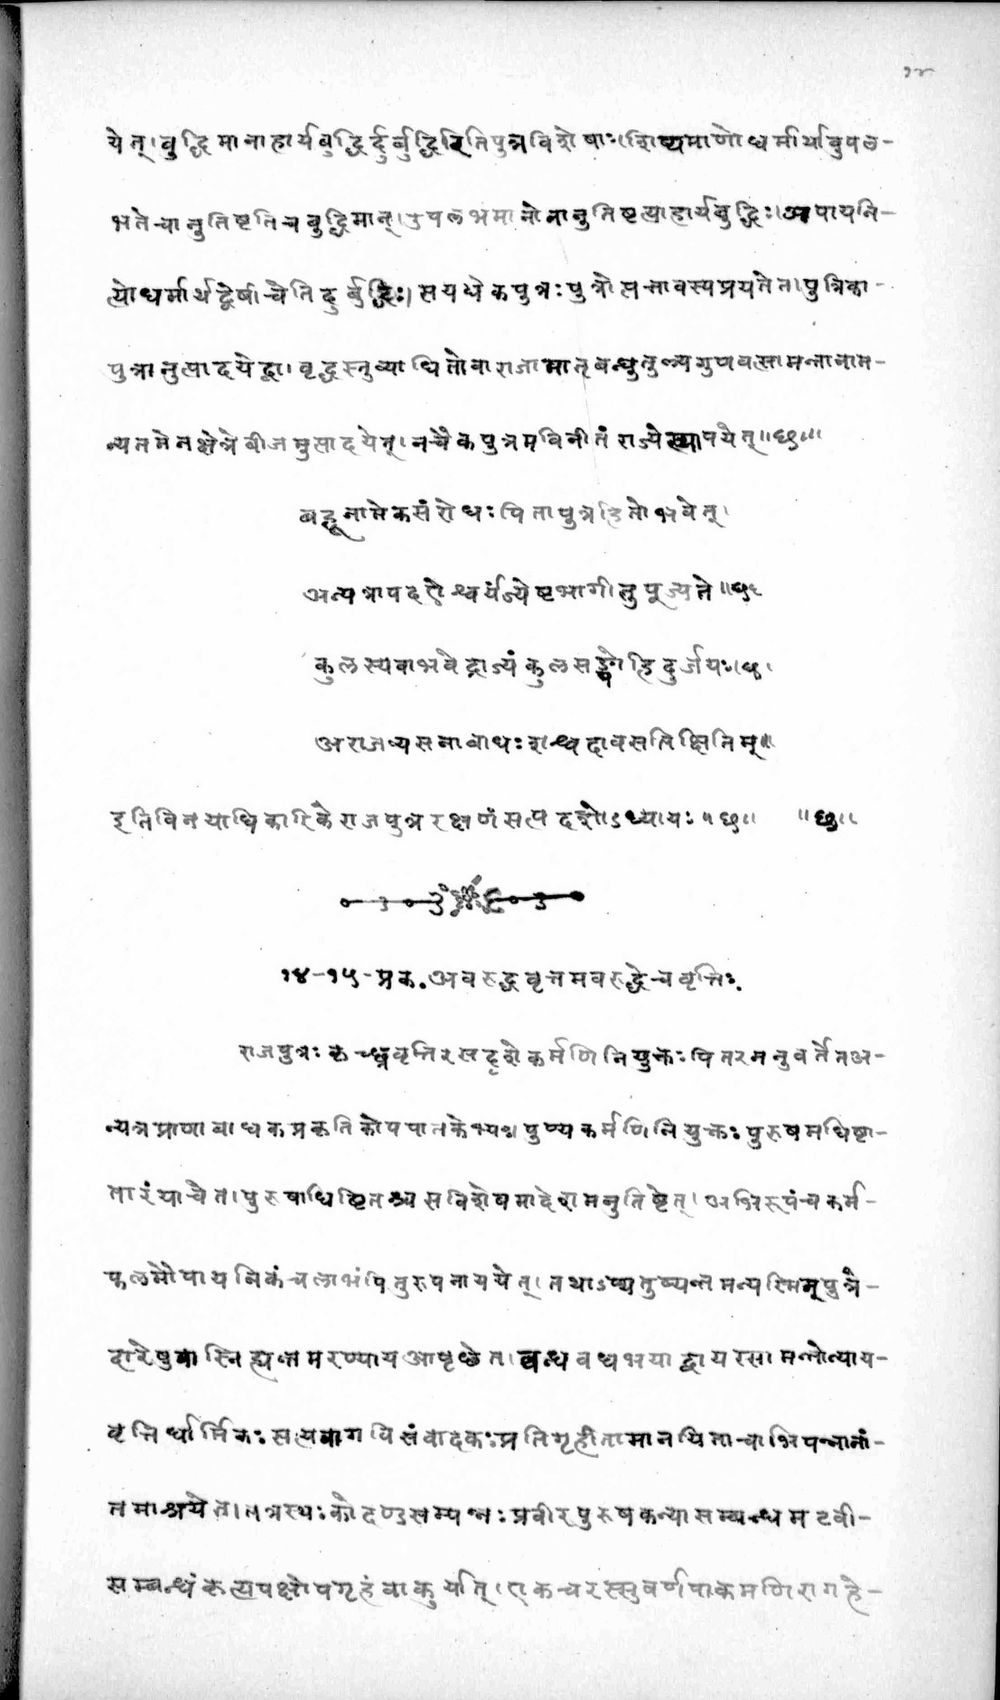 येत्। बुद्धिमानाहार्यबुद्धिर्दुर्बुद्धिरितिपुत्रविशेषाः। शिष्यमाणोधर्मार्थावुपल-
भतेचानुतिष्टतिचबुद्धिमान्। उपलभमानोनानुतिष्टत्याहार्यबुद्धिः। अपायनि-
त्योधर्मार्थद्वेषीचेतिदुर्बुद्धिः। सयद्येकपुत्रः पुत्रोत्पत्तावस्यप्रयतेत। पुत्रिका-
पुत्रानुत्पादयेद्वा। वृद्धस्तुव्याधितोवाराजामातृबन्धुतुल्यगुणवत्सामन्तानाम-
न्यतमेनक्षेत्रेबीजमुत्पादयेत्। नचैकपुत्रमविनीतंराज्येस्थापयेत्॥छ॥
बहूनामेकसंरोधः पितापुत्रहितोभवेत्।
अन्यत्रापदऐश्वर्यंज्येष्टभागीतुपूज्यते॥छ॥
कुलस्यवाभवेद्राज्यंकुलसङ्घोहिदुर्जयः।छ।
अराजव्यसनाबाधः शश्वदावसतिक्षितिम्॥
इतिविनयाधिकारिकेराजपुत्ररक्षणंसप्तदशोऽध्यायः॥छ॥ ॥छ॥
१४-१५-प्रक. अवरुद्धवृत्तमवरुद्धेचवृत्तिः.
राजपुत्रः कृच्छ्रवृत्तिरसदृशेकर्मणिनियुक्तः पितरमनुवर्तेतअ-
न्यत्रप्राणाबाधकप्रकृतिकोपपातकेभ्यः। पुण्यकर्मणिनियुक्तः पुरुषमधिष्टा-
तारंयाचेत। पुरुषाधिष्टितश्चसविशेषमादेशमनुतिष्टेत्। अभिरूपंचकर्म-
फलमौपायनिकंचलाभंपितुरुपनाययेत्। तथाऽप्यतुष्यन्तमन्यस्मिन्पुत्रे-
दारेषुवास्निह्यन्तमरण्यायआपृछेत। बन्धवधभयाद्वायस्सामन्तोन्याय-
वृत्तिर्धार्मिकः सत्यवागविसंवादकः प्रतिगृहीतामानयिताचाभिपन्नानां-
तमाश्रयेत। तत्रस्थः कोशदण्डसम्पन्नः प्रवीरपुरुषकन्यासम्बन्धमटवी-
सम्बन्धंकृत्यपक्षोपग्रहंवाकुर्यात्। एकचरस्सुवर्णपाकमणिरागहे-